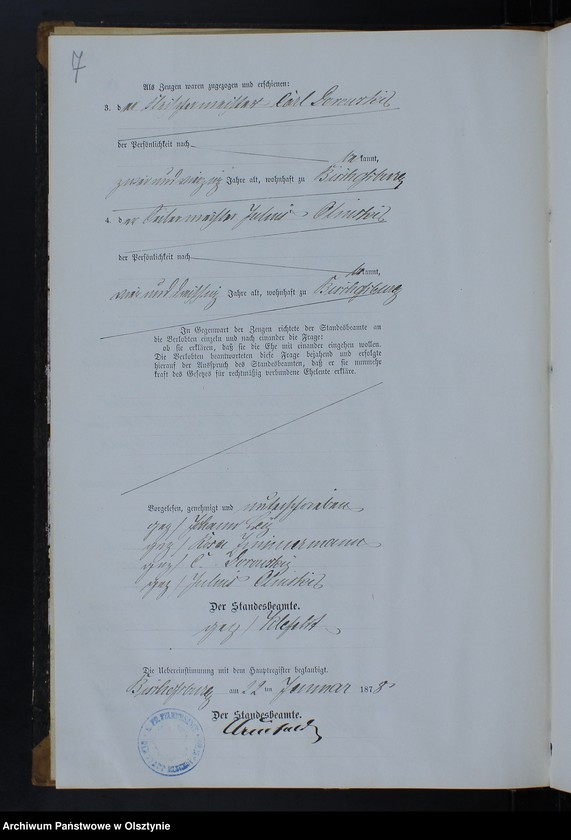 7
Als Zeugen waren zugezogen und erschienen:
3. der Fleischermeister Carl
der Persönlichkeit nach
bekannt,
zweiundvierzig Jahre alt, wohnhaft zu Bischofsburg
4. der Julius
der Persönlichkeit nach
bekannt,
und dreißig Jahre alt, wohnhaft zu Bischofsburg
In Gegenwart der Zeugen richtete der Standesbeamte an
die Verlobten einzeln und nach einander die Frage:
ob sie erklären, daß sie die Ehe mit einander eingehen wollen.
Die Verlobten beantworteten diese Frage bejahend und erfolgte
hierauf der Ausspruch des Standesbeamten, daß er sie nunmehr
kraft des Gesetzes für rechtmäßig verbundene Eheleute erkläre.
Vorgelesen, genehmigt und unterschrieben
gez/ Johann
gez/ Zimmermann
gez/ C.
gez/ Julius
Der Standesbeamte.
gez/
Die Uebereinstimmung mit dem Hauptregister beglaubigt.
Bischofsburg am 22ten Januar 1878
Der Standesbeamte.
Archiwum Państwowe w Olsztynie